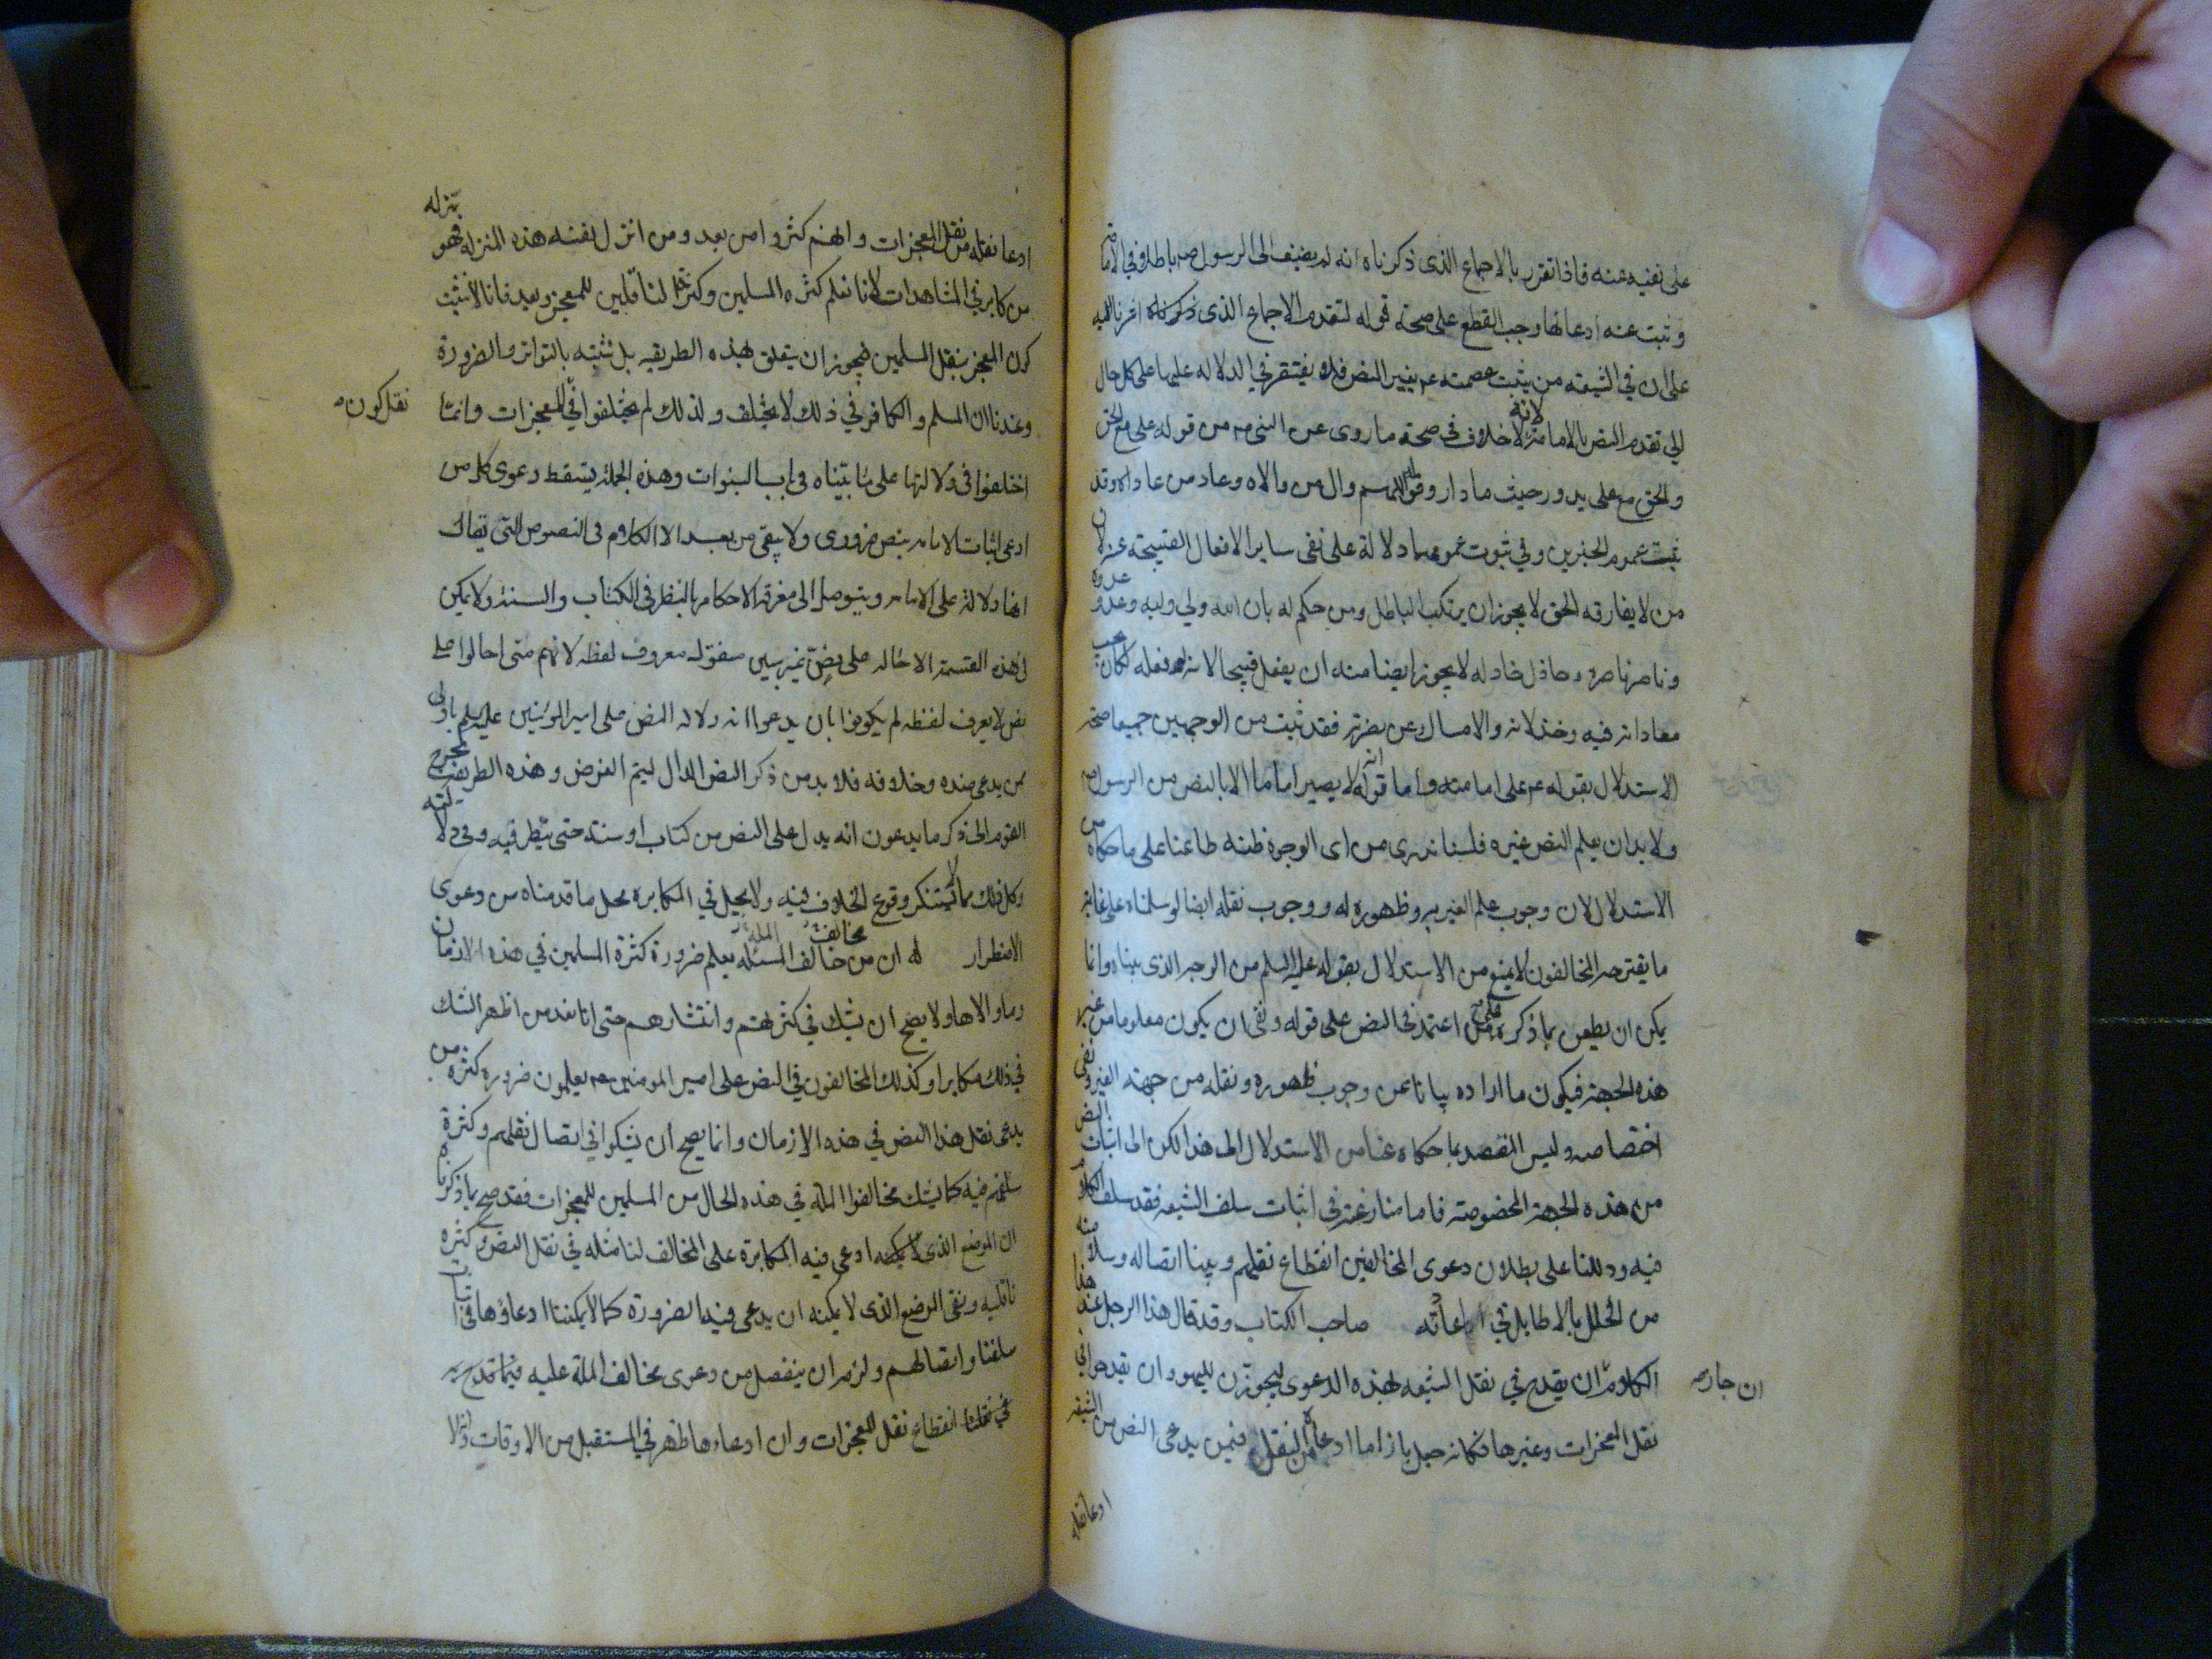 على نفيه عنه فاذا تقرر بالاجماع الذى ذكرناه انه لم يضيف الى الرسول صه باطلا فى الامامة
وثبت عنه ادعاؤها وجب القطع على صحة قوله لتقدم الاجماع الذى ذكرناه
على ان فى الشيعة من يثبت عصمته عم بغير النص فلا يفتقر فى الدلالة عليها على كل حال
الى تقدم النص بالامامة لانه لا خلاف فى صحة ما روى عن النبى صه من قوله على مع الحق
والحق مع على يدور حيث ما دار وقوله اللهم وال من والاه وعاد من عاداه وقد
ثبت عموم الخبرين وفى ثبوت عمومهما دلالة على نفى ساير الافعال القبيحة عنه لان
من لا يفارقه الحق لا يجوز ان يرتكب الباطل ومن حكم له بان الله ولى وليه وعدو عدوه
وناصر ناصره وخاذل خاذله لا يجوز ايضا منه ان يفعل قبيحا لانه لو فعله لكان يجب
معاداته فيه وخذلانه والامساك عن نصرته فقد ثبت من الوجهين جميعا صحة
الاستدلال بقوله عم على امامته واما قوله انه لا يصير اماما الا بالنص من الرسول صه
ولا بد ان يعلم النص غيره فلسنا ندرى من اى الوجوه ظنه طاعنا على ما حكاه من
الاستدلال لان وجوب علم الغير به وظهوره له ووجوب نقله ايضا لو سلمناه على غاية
ما يقترحه المخالفون لا يمنع من الاستدلال بقوله عليه السلم من الوجه الذى بيناه وانما
يمكن ان يطعن بما ذكره على من اعتمد فى النص على قوله ونفى ان يكون معلوما من غير
هذه الجهة فيكون ما اراده بيانا عن وجوب ظهوره ونقله من جهة الغير ونفى
اختصاصه وليس القصد بما حكاه عنا من الاستدلال الى هذا لكن الى اثبات النص
من هذه الجهة المخصوصة فاما منازعته فى اثبات سلف الشيعة فقد سلف الكلام
فيه ودللنا على بطلان دعوى المخالفين انقطاع نقلهم وبينا اتصاله وسلامته
من الخلل بالا طايل فى اعادته صاحب الكتاب وقد قال هذا الرجل عند هذا
الكلام ان جاز ان يقدح فى نقل الشيعة بهذه الدعوى ليجوزن لليهود ان يقدحوا فى
نقل المعجزات وغيرها فكانه جعل بازا ما ادعاه من النقل فيمن يدعى النص من الشيعة
ادعا نقله
ادعا نقله من نقل المعجزات وانهم كثروا من بعد ومن انزل نفسه هذه المنزله فهو بمنزله
من كابر فى المشاهدات لانا نعلم كثره المسلمين وكثرة الناقلين للمعجز وبعد فانا لا نثبت
كون المعجز بنقل المسلمين فيجوز ان يتعلق بهذه الطريقه بل نثبته بالتواتر والضرورة
وعندنا ان المسلم والكافر فى ذلك لا يختلف ولذلك لم يختلفوا فى نقل كون المعجزات وانما
اختلفوا فى دلالتها على ما بيناه فى باب النبوات وهذه الجملة يسقط دعوى كل من
ادعى اثبات الامامة بنص ضرورى ولا يبقى من بعد الا الكلام فى النصوص التى يقال
انها دلالة على الامامة ويتوصل الى معرفة الاحكام بالنظر فى الكتاب والسنة ولا يمكن
فى هذه القسمة الاحاله على نص غير مبين منقول معروف لفظه لانهم متى احالوا على
نص لا يعرف لفظه لم يكونوا بان يدعوا انه دلالة النص على امير المؤمنين عليه السلم باولى
من يدعى ضده وخلافه فلا بد من ذكر النص الدال ليتم الغرض وهذه الطريقة تحوج
القوم الى ذكر ما يدعون انه يدل على النص من كتاب او سنة حتى ينظر فيه وفى دلالته
وكل ذلك مما لا يستنكر وقوع الخلاف فيه ولا يحل فى المكابرة محل ما قدمناه من دعوى
الاضطرار له ان من خالف المسئله يعلم ضرورة كثرة المسلمين فى هذه الازمان
وما والاها ولا يصح ان يشك فى كثرتهم وانتشارهم حتى انا نعد من اظهر الشك
فى ذلك مكابرا وكذلك المخالفون فى النص على امير المومنين عم يعلمون ضرورة كثرة من
يدعى نقل هذا النص فى هذه الازمان وانما يصح ان يشكوا فى اتصال نقلهم وكثرة
سلفهم فيه كما يشك مخالفوا الملة فى هذه الحال من المسلمين للمعجزات فقد صح بما ذكرناه
ان الموضع الذى ادعى فيه المكابرة على المخالف لنا مثله فى نقل النص وكثرة
ناقليه وبقى الموضع الذى لا يمكنه ان يدعى فيه الضرورة كما لا يمكننا ادعاؤها فى اثبات
سلفنا واتصالهم ولزم ان ينفصل من دعوى مخالف الملة عليه فيما قدح به
فى نقلنا انقطاع نقل المعجزات وان ادعاءها ظهر فى المستقبل من الاوقات